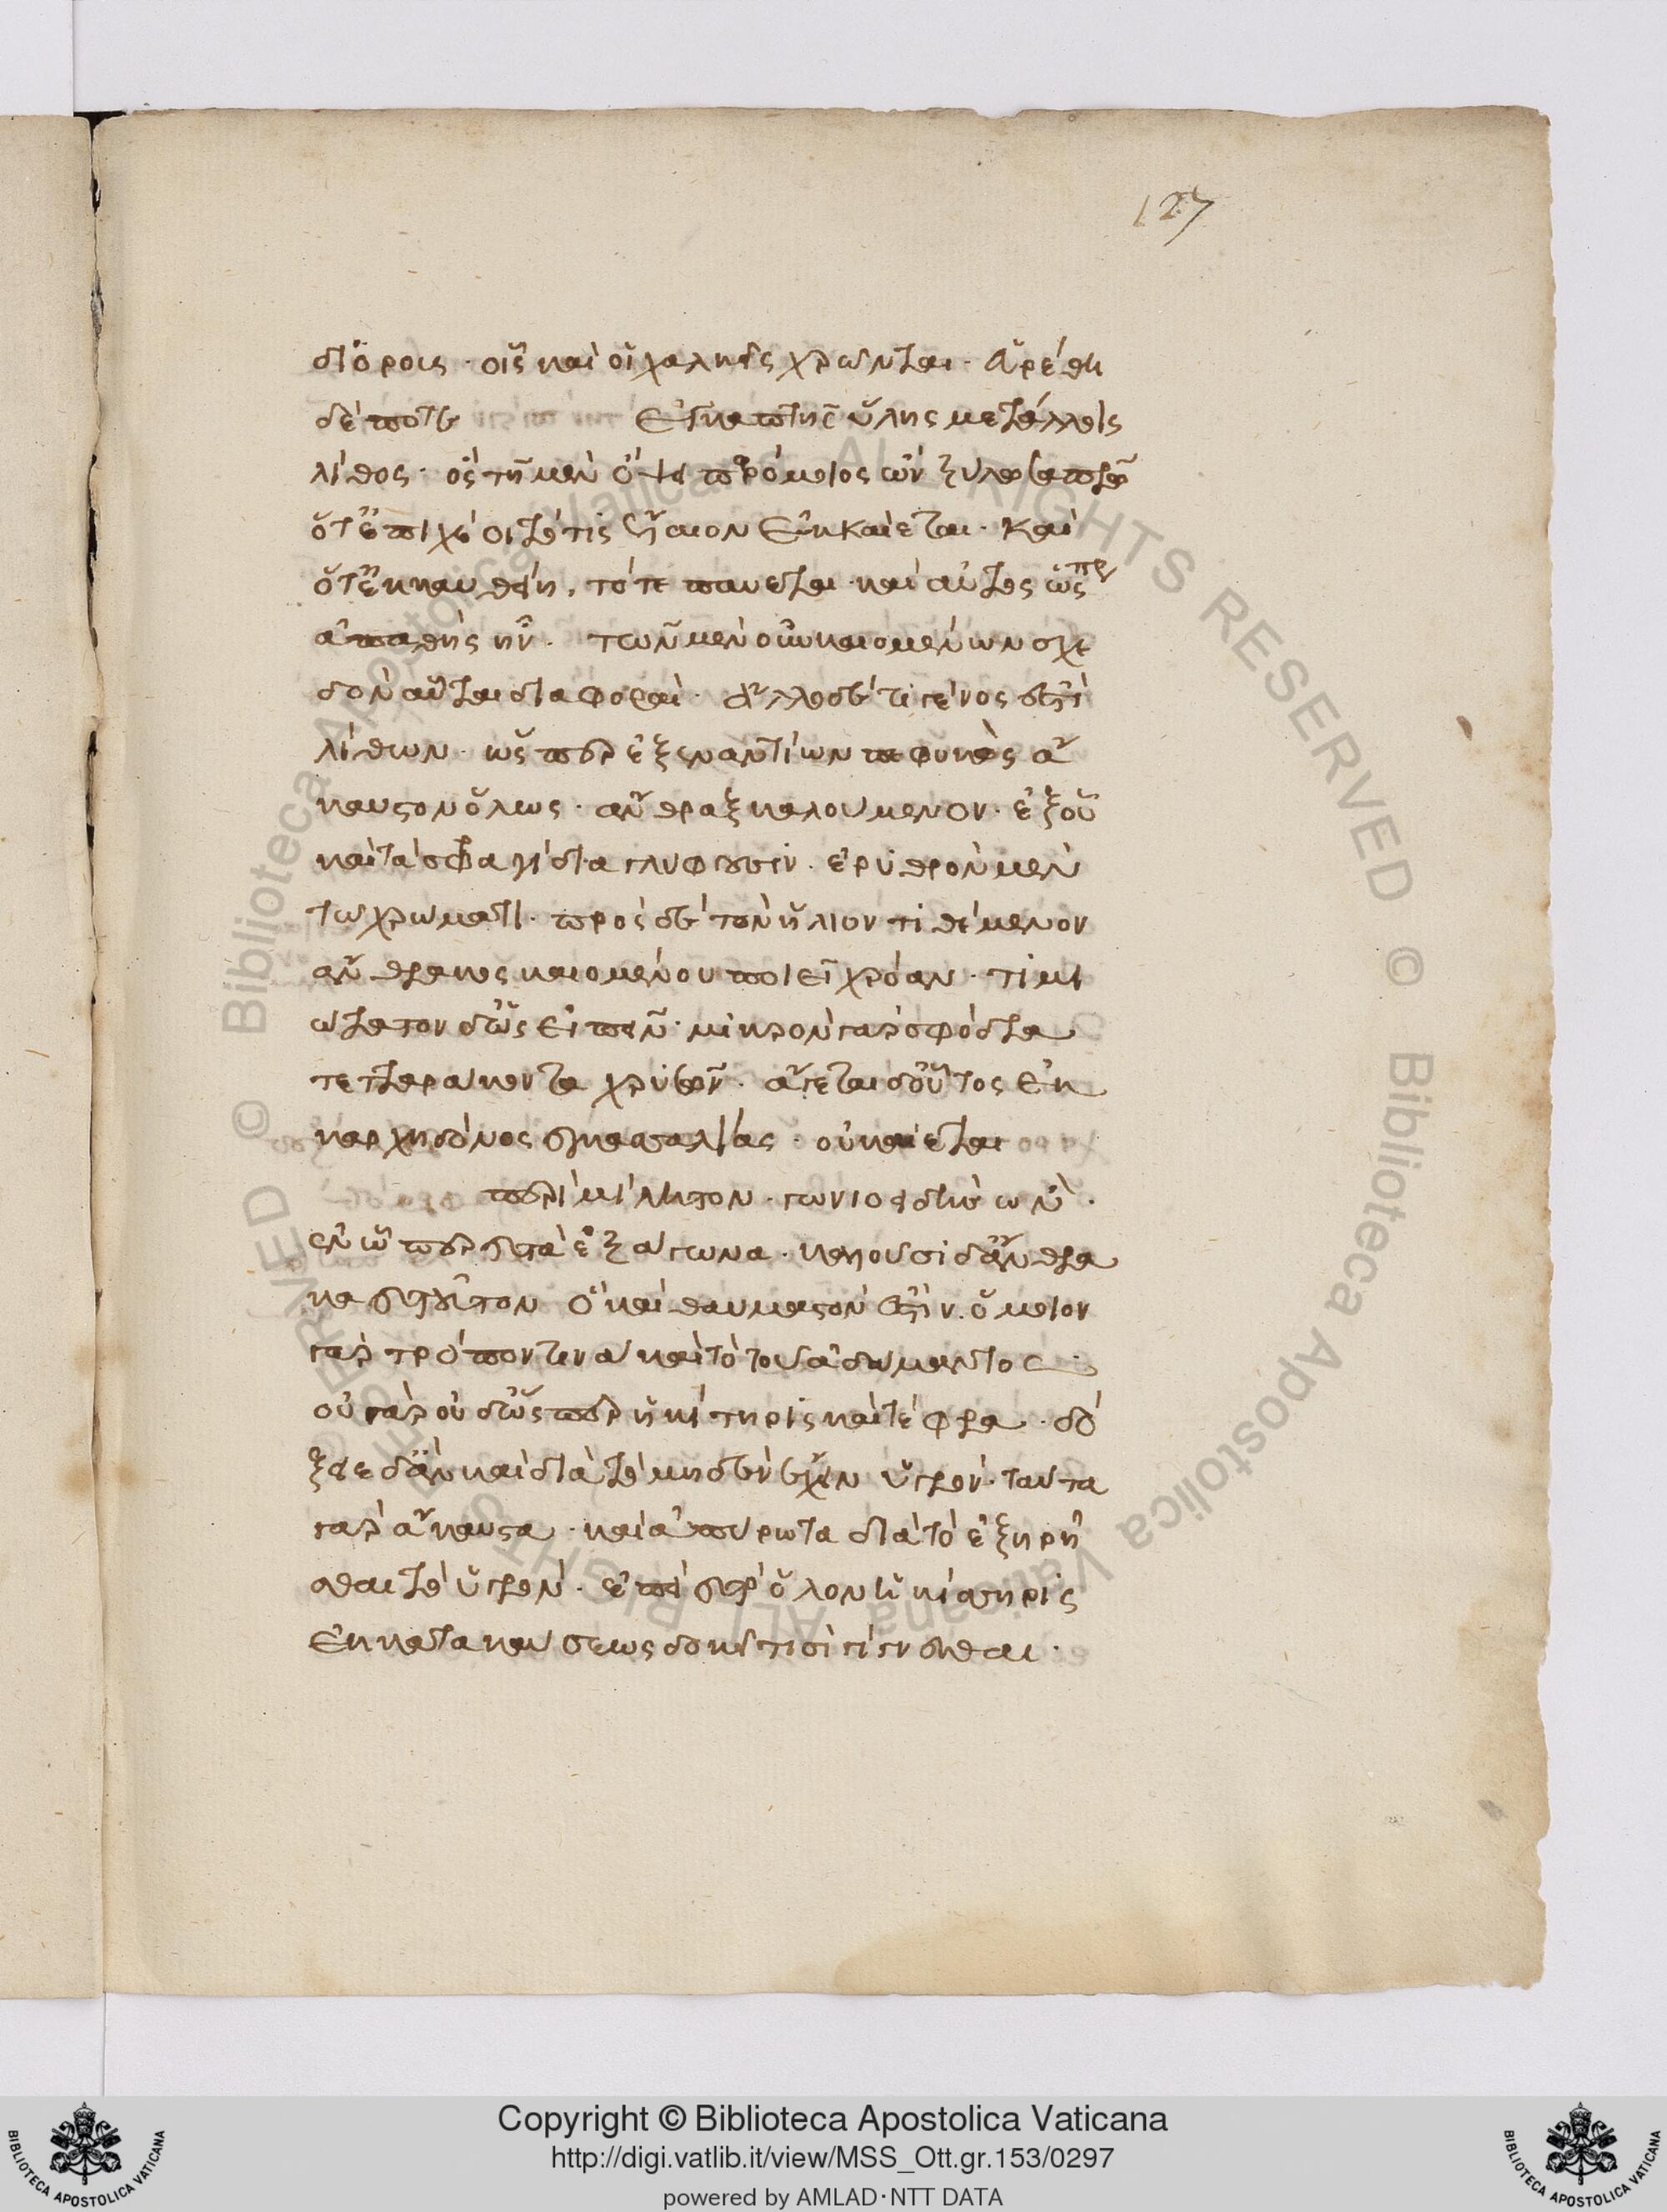 127
διόροις · οἷς καὶ οἱ χαλκεῖς χρῶνται · εὑρέθη
δέ ποτε ἐν τοῖς ὕλης μετάλλοις
λίθος · ὃς τῇ μὲν ὄψει παρόμοιος ὢν ξύλω σαπρῶ
ὅτ' ἐπιχέοιτό τις ἔλαιον ἐκκαίεται · καὶ
ὅτ' ἐκκαυθείη, τότε παύεται καὶ αὐτὸς ὥσπερ
ἀπαθὴς ἦν · τῶν μὲν οὖν καιομένων σχε
δὸν αὗται διαφοραὶ · ἄλλο δέ τι γένος ἐστὶ
λίθων · ὥσπερ ἐξ ἐναντίων πεφυκὸς ἄ
καυστον ὅλως · ἄνθραξ καλούμενον · ἐξ οὗ
καὶ τὰ σφραγίδια γλύφουσιν · ἐρυθρὸν μὲν
τῶ χρώματι · πρὸς δὲ τὸν ἥλιον τιθέμενον
ἄνθρακος καιομένου ποιεῖ χρόαν · τιμι
ώτατον δ' ὡς εἰπεῖν · μικρὸν γὰρ σφόδρα
τετταράκοντα χρυσῶν · ἄγεται δ' οὗτος ἐκ
καρχηδόνος καὶ μασσαλίας · οὐ καίεται
περὶ μίλητον · γωνιοειδὴς ὢν ·
ἐν ὧπερ καὶ τὰ ἑξάγωνα · καλοῦσι δ' ἄνθρα
κα καὶ τοῦτον ὃ καὶ θαυμαστόν ἐστιν · ὅμοιον
γὰρ τρόπον τινὰ καὶ τὸ τοῦ ἀδάμαντος
οὐ γὰρ οὐδ' ὥσπερ ἡ κίσηρις καὶ τέφρα · δό
ξειε δ' ἂν καὶ διὰ τὸ μηδὲν ἔχειν ὑγρόν · ταῦτα
γὰρ ἄκαυστα · καὶ ἀπύρωτα διὰ τὸ ἐξῃρῆ
σθαι τὸ ὑγρὸν · ἐπεὶ καὶ τὸ ὅλον ἡ κίσηρις
ἐκ κατακαύσεως δοκεῖ τισὶ γίγνεσθαι ·
Copyright © Biblioteca Apostolica Vaticana
http://digi.vatlib.it/view/MSS_Ott.gr.153/0297
powered by AMLAD·NTT DATA